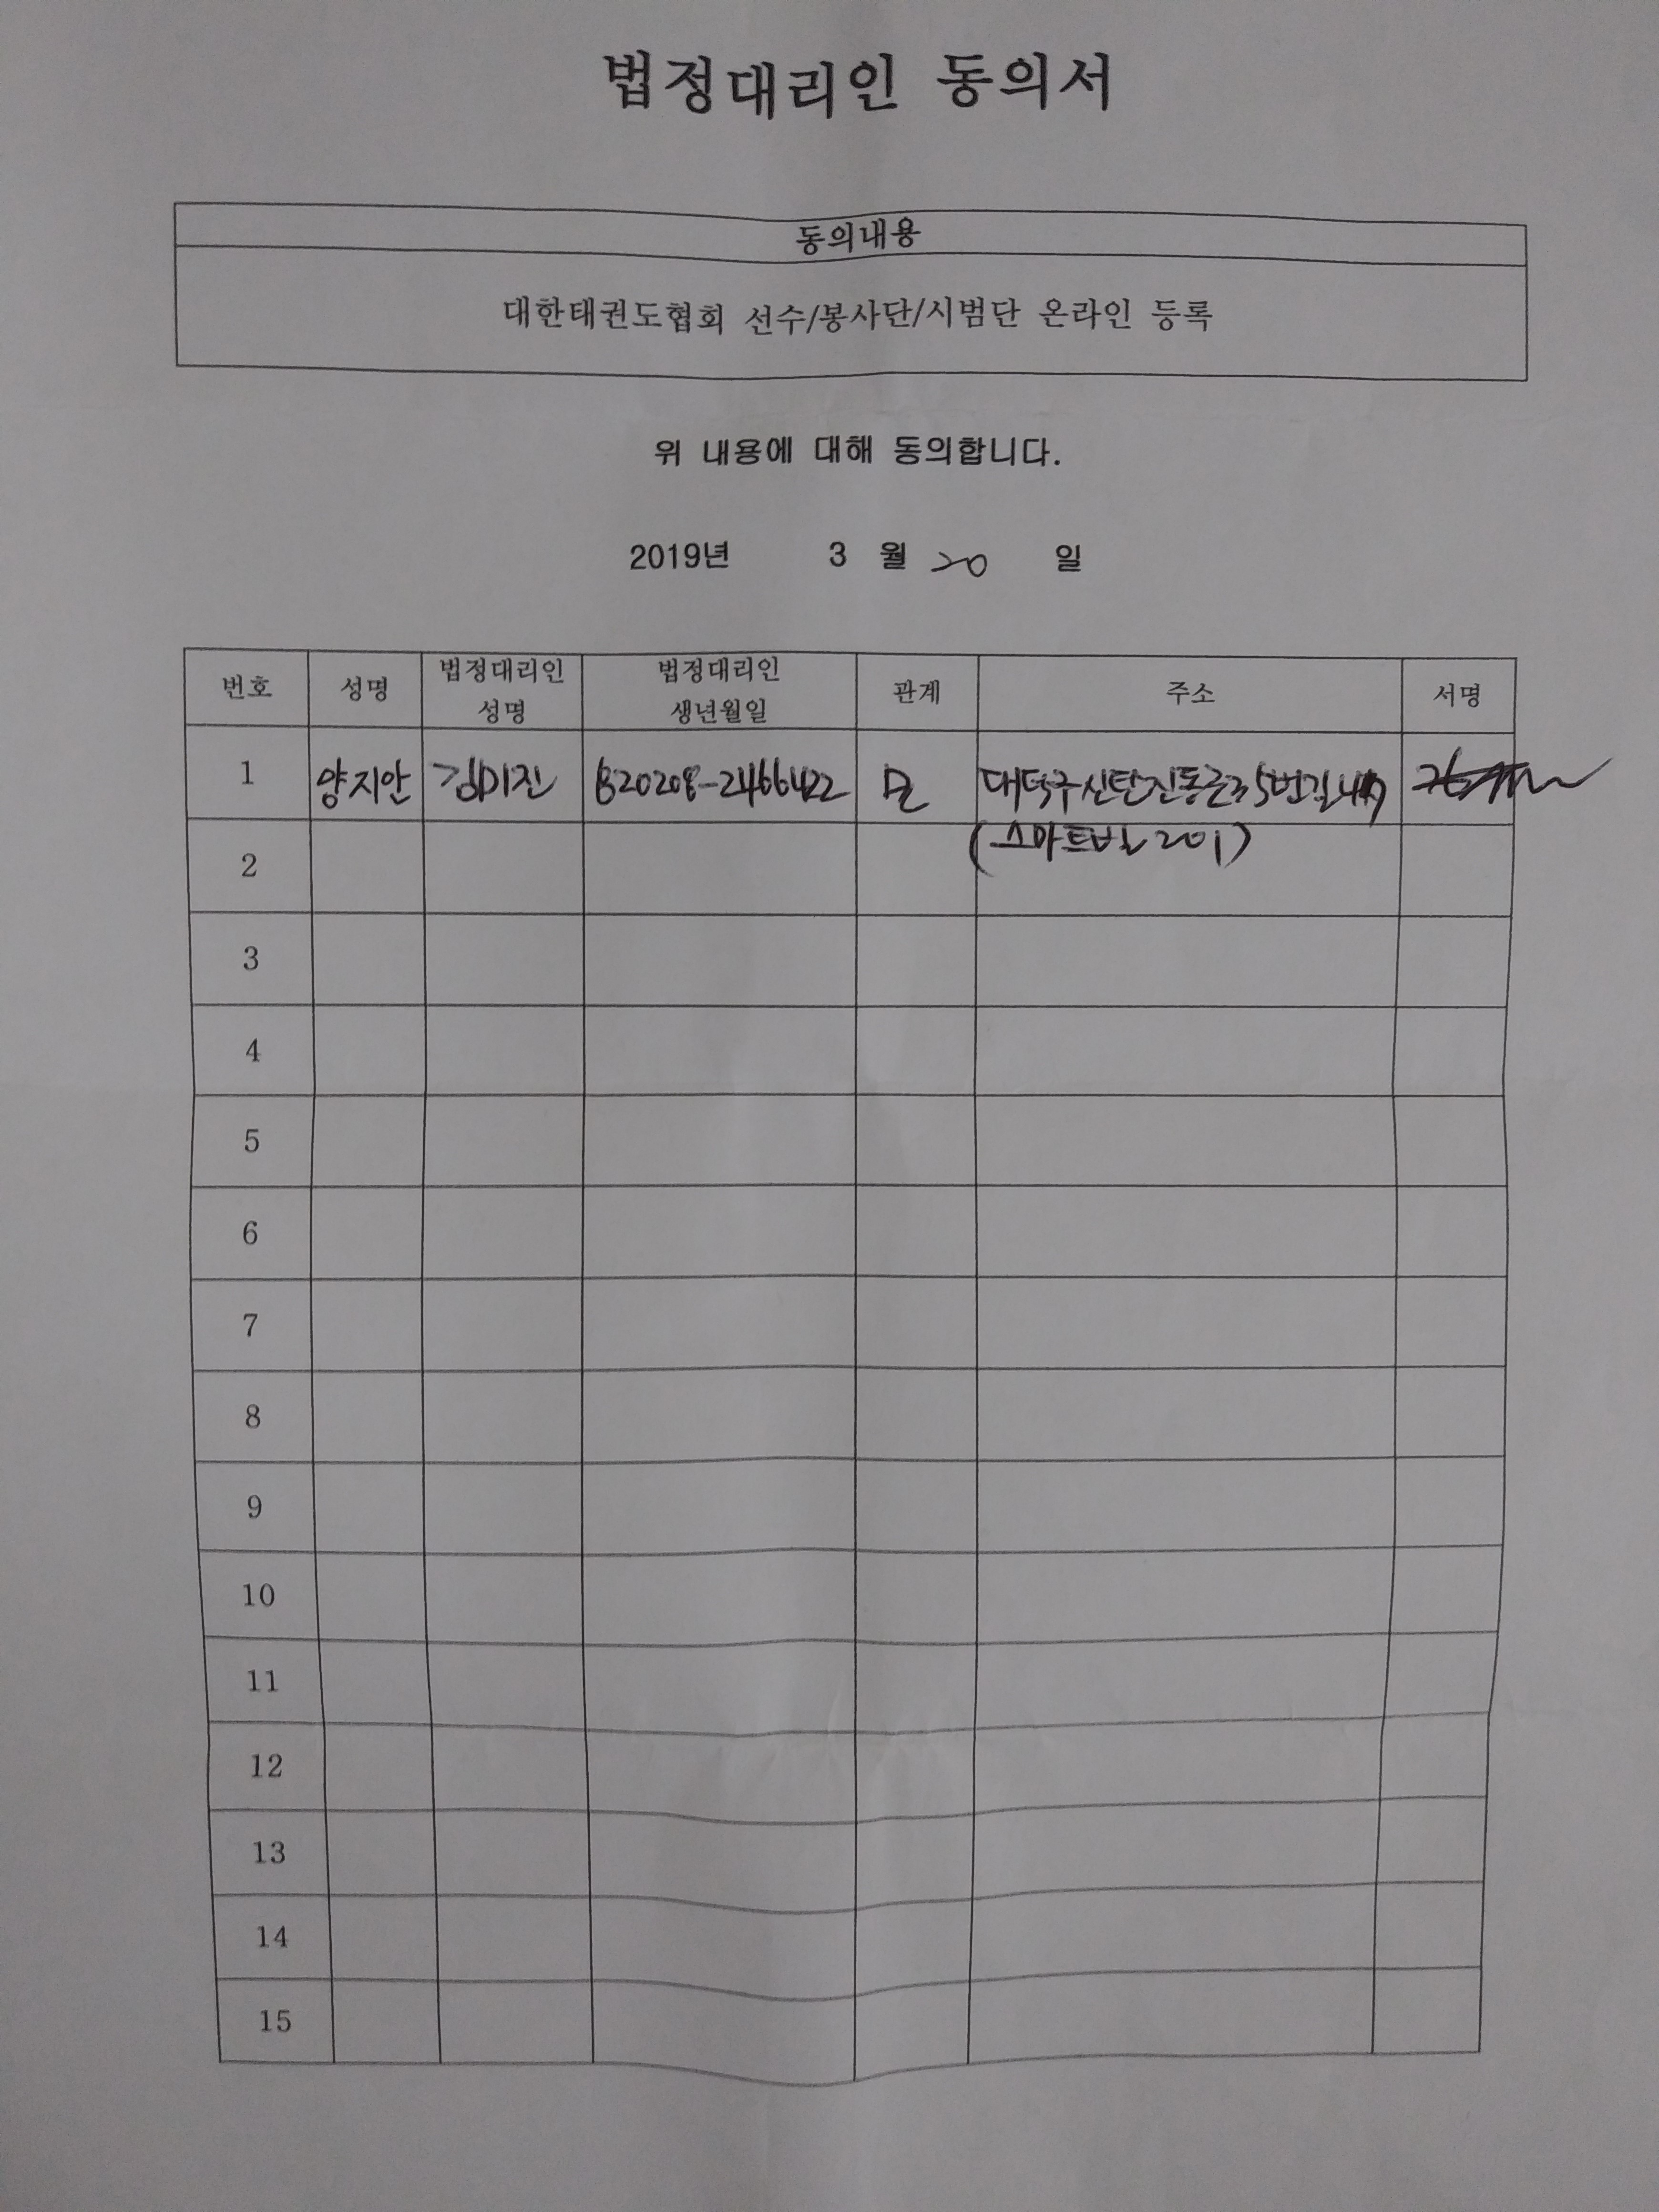 법정대리인 동의서
동의내용
대한태권도협회 선수/봉사단/시범단 온라인 등록
위 내용에 대해 동의합니다.
2019년 3 월 20 일
번호 성명 법정대리인 성명 법정대리인 생년월일 관계 주소 서명
1 양지안 김미진 820208-2466422 모 대덕구 신탄진동로35번길
(스마트빌 201)
2
3
4
5
6
7
8
9
10
11
12
13
14
15